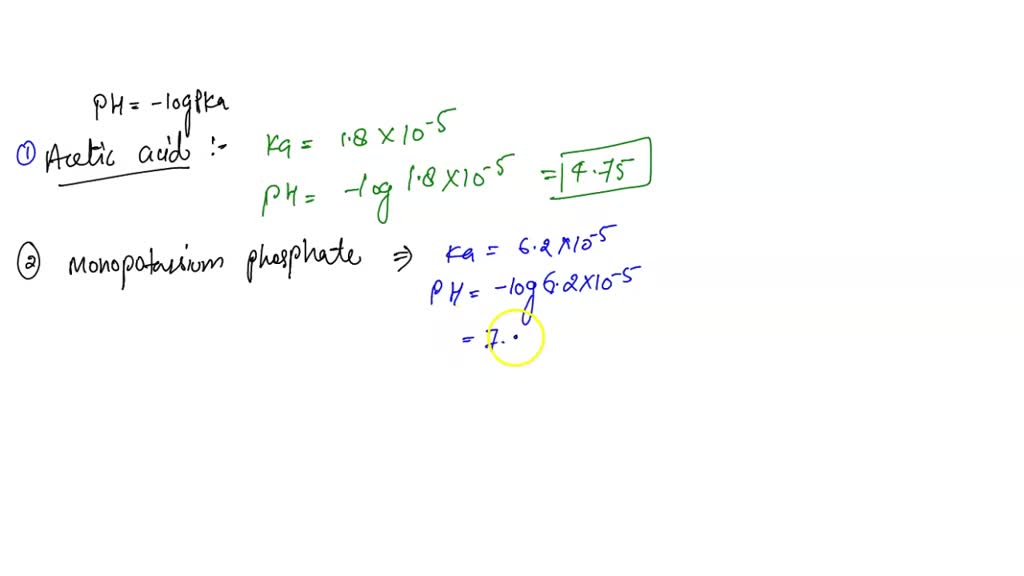 PH = -log PKa
① Acetic acid :- Ka = 1.8 × 10⁻⁵
PH = -log 1.8 × 10⁻⁵ = 4.75
② Monopotassium phosphate ⇒ Ka = 6.2 × 10⁻⁵
PH = -log 6.2 × 10⁻⁵
= 7.